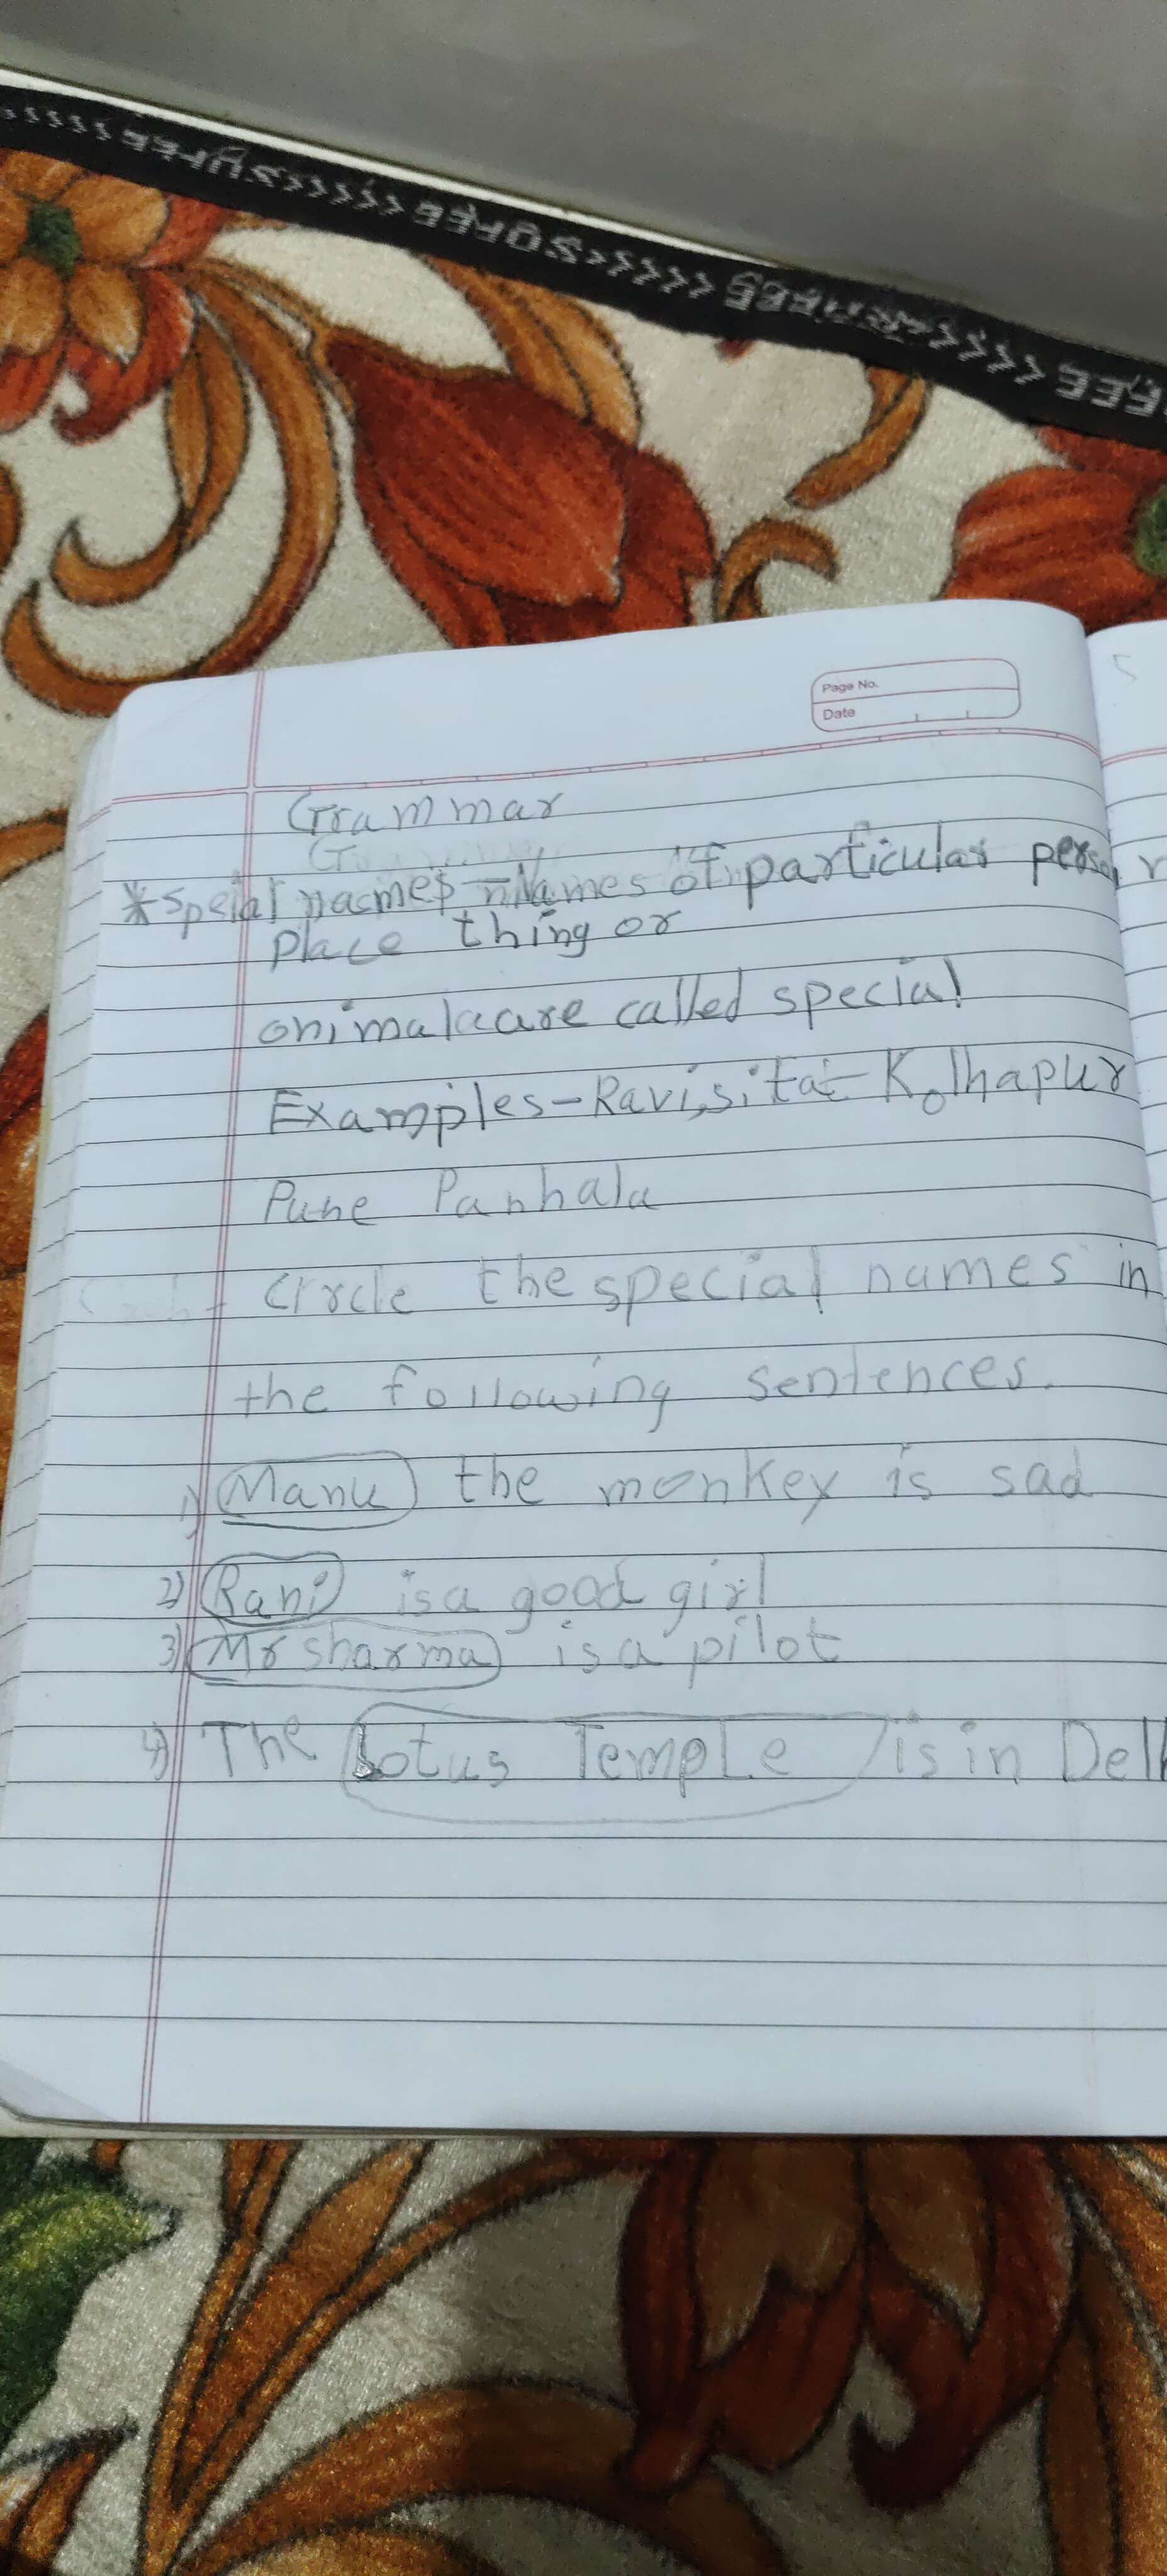 Page No.
Date
Grammar
*Speial names - Names of particular person
place thing or
onimalaare called special
Examples-Ravi,sita-Kolhapur
Pune Panhala
Circle the special names in
the following sentences.
1) Manu the monkey is sad
2) Rani is a good girl
3) Mr sharma is a pilot
4) The Lotus Temple is in Delh